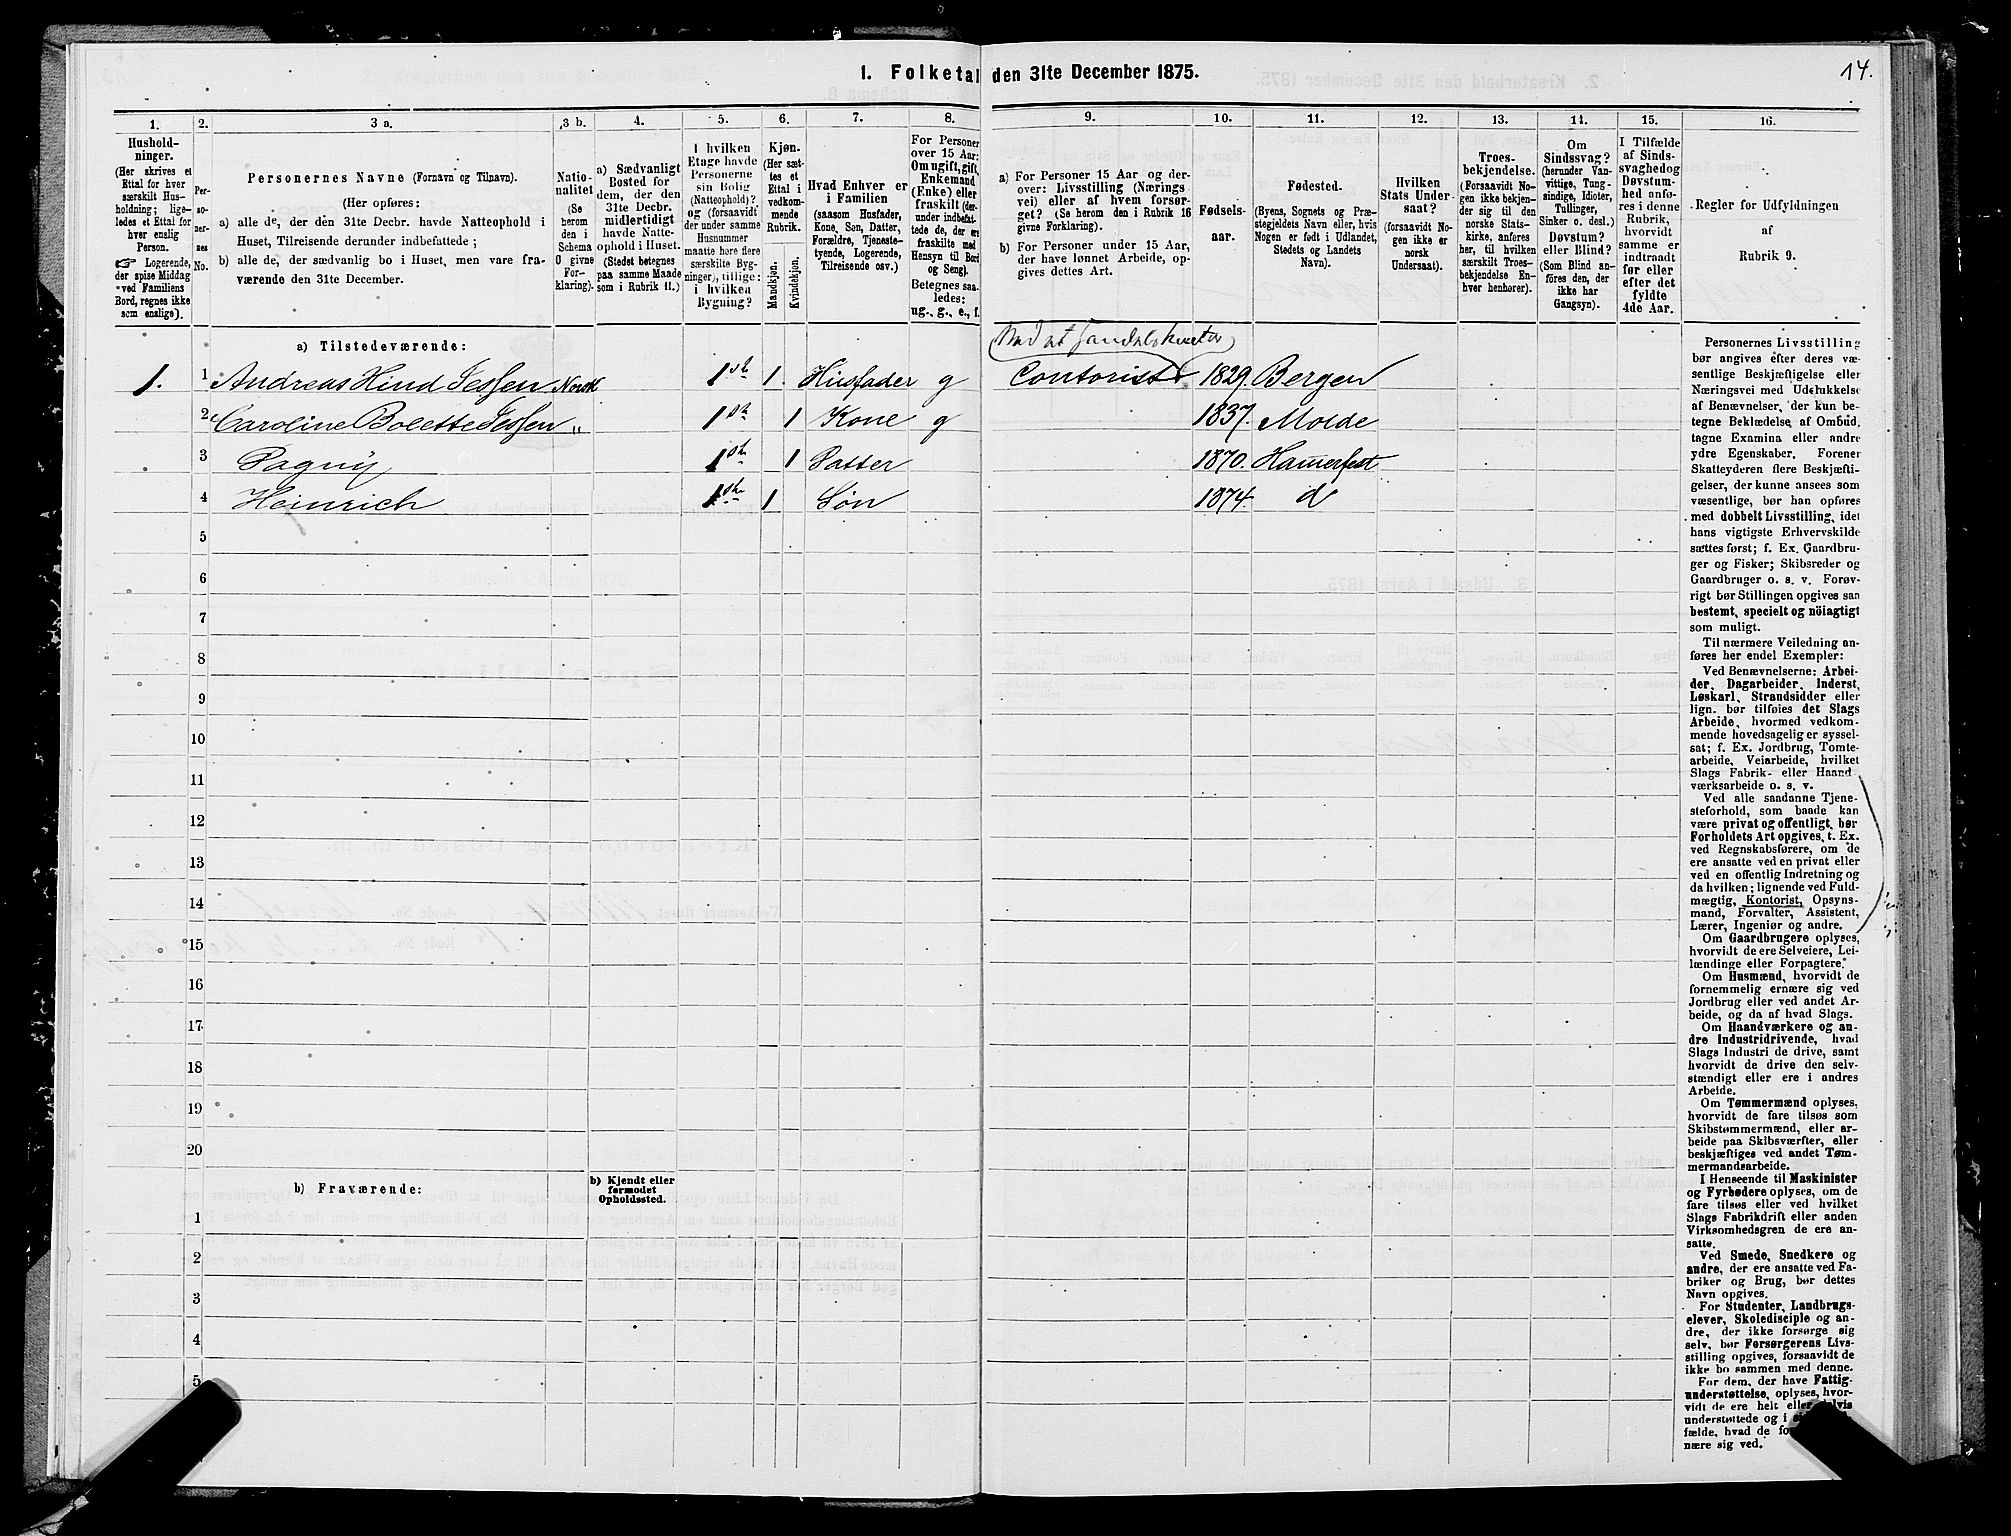 1. Folketal den 31te December 1875.
14.
1.
2.
3 a.
3 b.
4.
5.
6.
7.
8.
9.
10.
11.
12.
13.
14.
15.
16.
Hushold-
ninger.
(Her skrives et
Ettal for hver
særskilt Hus-
holdning; lige-
ledes et Ettal for
hver enslig
Person.
☞ Logerende,
der spise Middag
ved Familiens
Bord, regnes ikke
som enslige).
Per-
so-
ner-
nes
No.
Personernes Navne (Fornavn og Tilnavn).
(Her opføres:
a) alle de, der den 31te Decbr. havde Natteophold i
Huset, Tilreisende derunder indbefattede;
b) alle de, der sædvanlig bo i Huset, men vare fra-
værende den 31te December.
Natio-
nalitet
(Se
herom
den i
Schema
O givne
For-
klaring).
a) Sædvanligt
Bosted for
dem, der den
31te Decbr.
midlertidigt
havde Natte-
ophold i Huset.
(Stedet betegnes
paa samme Maade
som i Rubrik 11.)
I hvilken
Etage havde
Personerne
sin Bolig
(Natteophold)?
og (forsaavidt
der under samme
Husnummer
maatte høre flere
særskilte Byg-
ninger), tillige:
i hvilken
Bygning?
Kjøn.
(Her sæt-
tes et
Ettal i
vedkom-
mende
Rubrik.
Mandkjøn.
Kvindekjøn.
Hvad Enhver er
i Familien
(saasom Husfader,
Kone, Søn, Datter,
Forældre, Tjeneste-
tyende, Logerende,
Tilreisende osv.)
For Personer
over 15 Aar:
Om ugift, gift,
Enkemand
(Enke) eller
fraskilt (der-
under indbefat-
tede de, der ere
fraskilte med
Hensyn til Bord
og Seng).
Betegnes saa-
ledes:
ug., g., e., f.
a) For Personer 15 Aar og der-
over: Livsstilling (Nærings
vei) eller af hvem forsør-
get? (Se herom den i Rubrik 16
givne Forklaring).
b) For Personer under 15 Aar,
der have lønnet Arbeide, op-
gives dettes Art.
Fødsels-
aar.
Fødested.
(Byens, Sognets og Præ-
stegjeldets Navn eller, hvis
Nogen er født i Udlandet,
Stedets og Landets
Navn).
Hvilken
Stats Under-
saat?
(forsaavidt No-
gen ikke er
norsk
Undersaat).
Troes-
bekjendelse.
(Forsaavidt No-
gen ikke bekjen-
der sig til den
norske Stats-
kirke, anføres
her, til hvilken
særskilt Troes-
bekjendelse En-
hver henhører).
Om
Sindssvag?
(herunder Van-
vittige, Tung-
sindige, Idioter,
Tullinger,
Sinker o. desl.)
Døvstum?
eller Blind?
(Som Blind an-
føres den, der
ikke har
Gangsyn).
I Tilfælde
af Sinds-
svaghedog
Døvstum-
hed anfø-
res i denne
Rubrik,
hvorvidt
samme er
indtraadt
før eller
efter det
fyldte
4de Aar.
Regler for Udfyldningen
af
Rubrik 9.
a) Tilstedeværende:
1. 1 Andreas Hind Jessen Norsk 1ste 1. Husfader g Contorist 1829. Bergen
2 Caroline Bolette Jessen „ 1ste 1 Kone g 1837. Molde
3 Dagny 1ste 1 Datter 1870. Hamerfest
4 Heinrich 1ste 1 Søn 1874. d
5
6
7
8
9
10
11
12
13
14
15
16
17
18
19
20
b) Fraværende:
b) Kjendt eller
formodet
Opholdssted.
1
2
3
4
5
Personernes Livsstilling
bør angives efter deres væ-
sentlige Beskjæftigelse eller
Næringsvei med Udelukkelse
af Benævnelser, der kun be-
tegne Beklædelse af Ombud,
tagne Examina eller andre
ydre Egenskaber. Forener
Skatteyderen flere Beskjæfti-
gelser, der kunne ansees som
væsentlige, bør han opføres
med dobbelt Livsstilling, idet
hans vigtigste Erhvervskilde
sættes først; f. Ex. Gaardbru-
ger og Fisker; Skibsreder og
Gaardbruger o. s. v. Forøv-
rigt bør Stillingen opgives saa
bestemt, specielt og nöiagtigt
som muligt.
Til nærmere Veiledning an-
føres her endel Exempler:
Ved Benævnelserne: Arbei-
der, Dagarbeider, Inderst,
Løskarl, Strandsidder eller
lign. bør tilføies det Slags
Arbeide, hvormed vedkom-
mende hovedsagelig er syssel-
sat; f. Ex. Jordbrug, Tomte-
arbeide, Veiarbeide, hvilket
Slags Fabrik- eller Haand
værksarbeide o. s. v.
Ved alle saadanne Tjene-
steforhold, som baade kan
være privat og offentligt, bør
Forholdets Art opgives, t. Ex.
ved Regnskabsførere, om de
ere ansatte ved en privat eller
ved en offentlig Indretning og
da hvilken; lignende ved Fuld-
mægtig, Kontorist, Opsyns-
mand, Forvalter, Assistent,
Lærer, Ingeniør og andre.
Om Gaardbrugere oplyses,
hvorvidt de ere Selveiere, Lei-
lændinge eller Forpagtere.
Om Husmænd, hvorvidt de
fornemmelig ernære sig ved
Jordbrug eller ved andet Ar-
beide, og da af hvad Slags.
Om Haandværkere og an-
dre Industridrivende, hvad
Slags Industri de drive, samt
hvorvidt de drive den selv-
stændigt eller ere i andres
Arbeide.
Om Tømmermænd oplyses,
hvorvidt de fare tilsøs som
Skibstømmermænd, eller ar-
beide paa Skibsværfter, eller
beskjæftiges ved andet Tøm-
mermandsarbeide.
I Henseende til Maskinister
og Fyrbødere oplyses, om de
fare tilsøs eller ved hvilket
Slags Fabrikdrift eller anden
Virksomhedsgren de ere an-
satte.
Ved Smede, Snedkere og
andre, der ere ansatte ved Fa-
briker og Brug, bør dettes
Navn opgives.
For Studenter, Landbrugs-
elever, Skoledisciple og an-
dre, der ikke forsørge sig
selv, bør Forsørgerens Livs-
stilling opgives, forsaavidt de
ikke bo sammen med denne.
For dem, der have Fattig-
understøttelse, oplyses, hvor-
vidt de ere helt eller delvis
understøttede og i
fælde, hvad de
nære sig ved.